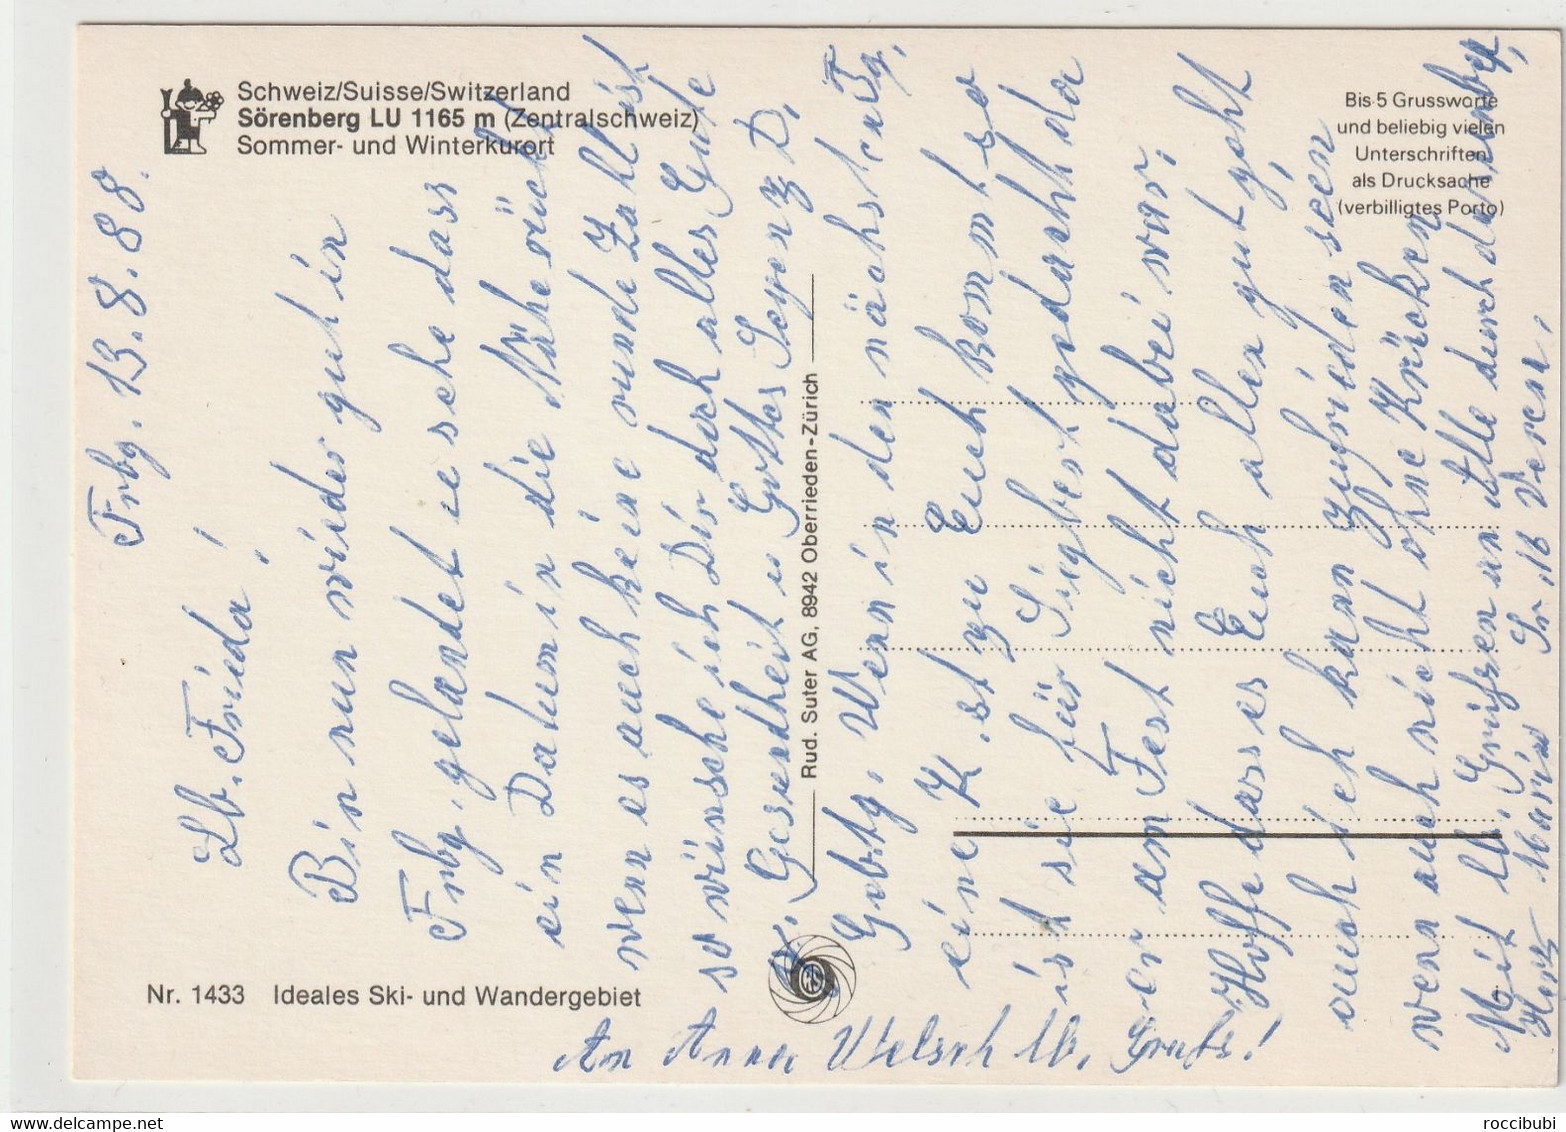 Schweiz/Suisse/Switzerland
Sörenberg LU 1165 m (Zentralschweiz)
Sommer- und Winterkurort
Bis 5 Grussworte
und beliebig vielen
Unterschriften
als Drucksache
(verbilligtes Porto)
Rud. Suter AG, 8942 Oberrieden-Zürich
Nr. 1433 Ideales Ski- und Wandergebiet
Frbg. 13.8.88.
Lb. Frieda!
Bin nun wieder gut in
Frbg. gelandet u sehe dass
ein Datum in die Nähe rückt
wenn es auch keine runde Zahl ist
so wünsche ich Dir doch alles Gute
Gesundheit u Gottes Segen z D.
Gebtg. Wenn in den nächst
eine K. st zu Euch kommt so
ist sie für Sigbert gedacht da
er am Fest nicht dabei war;
Hoffe dass es Euch allen gut geht
auch ich kann zufrieden sein
wenn auch nicht ohne Krücken
Mit lb. Grüßen an alle durch
Maria Sr. 18 Veren.
An Anna Welsch lb. Gruß!
roccibubi